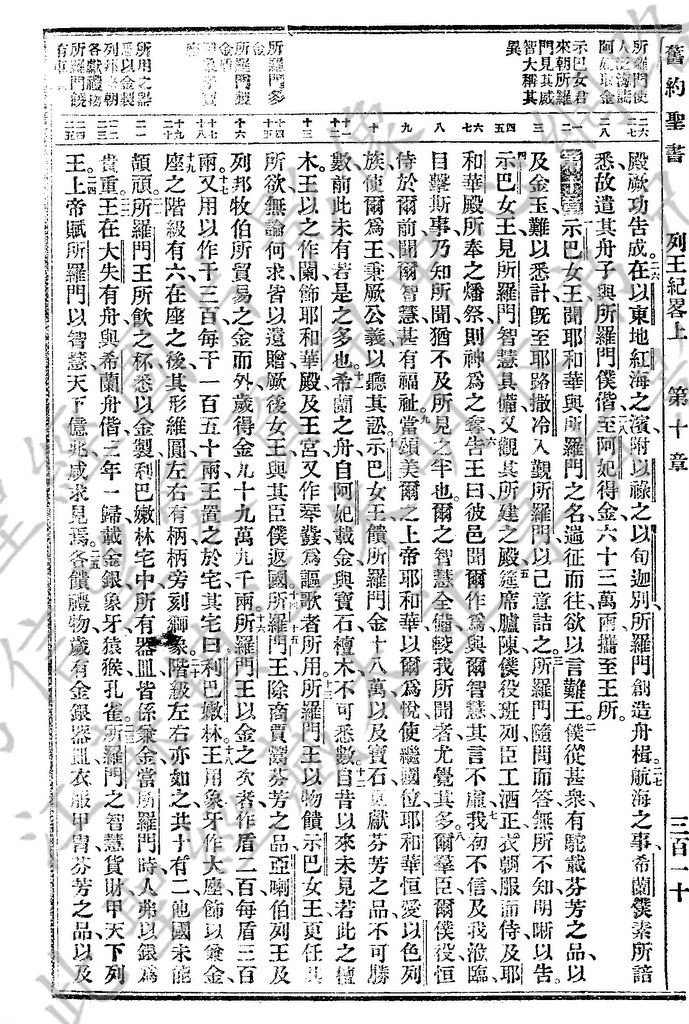 舊約聖書 列王紀畧上 第十章 三百一十
所羅門使
人泛海詣
阿妃取金
示巴女君
來朝所羅
門見其威
智大稱其
異
所羅門多
金
所羅門製
金盾
所用之器
悉以金製
列邦來朝
各獻禮物
所羅門錢
殿厥功告成在以東地紅海之濱附以祿之以旬迦別所羅門創造舟楫航海之事希蘭僕素所諳
悉故遣其舟子與所羅門僕偕至阿妃得金六十三萬兩攜至王所
示巴女王聞耶和華與所羅門之名遄征而往欲以言難王僕從甚衆有駝載芬芳之品以
及金玉難以悉計旣至耶路撒冷入覲所羅門以己意詰之所羅門隨問而答無所不知明晰以告
示巴女王見所羅門智慧具備又觀其所建之殿筵席臚陳僕役班列臣工酒正衣朝服而侍及耶
和華殿所奉之燔祭則神爲之奪告王曰彼邑聞爾作爲與爾智慧其言不虛我初不信及我涖臨
目擊斯事乃知所聞猶不及所見之半也爾之智慧全備較我所聞者尤覺其多爾羣臣爾僕役恒
侍於爾前聞爾智慧甚有福祉當頌美爾之上帝耶和華以爾爲悅使繼國位耶和華恒愛以色列
族使爾爲王秉厥公義以聽其訟示巴女王饋所羅門金十八萬以及寶石更獻芬芳之品不可勝
數前此未有若是之多也希蘭之舟自阿妃載金與寶石檀木不可悉數自昔以來未見若此之檀
木王以之作闌飾耶和華殿及王宮又作琴瑟爲謳歌者所用所羅門王以物饋示巴女王更任其
所欲無論何求皆以遺贈厥後女王與其臣僕返國所羅門王除商賈鬻芬芳之品亞喇伯列王及
列邦牧伯所貿易之金而外歲得金九十九萬九千兩所羅門王以金之次者作盾二百每盾三百
兩又用以作干三百每干一百五十兩王置之於宅其宅曰利巴嫩林王用象牙作大座飾以兼金
座之階級有六在座之後其形維圓左右有柄柄旁刻獅象階級左右亦如之共十有二他國未能
頡頏所羅門王所飲之杯悉以金製利巴嫩林宅中所有器皿皆係兼金當所羅門時人弗以銀爲
貴重王在大失有舟與希蘭舟偕三年一歸載金銀象牙猿猴孔雀所羅門之智慧貨財甲天下列
王上帝賦所羅門以智慧天下億兆咸求見焉各饋禮物歲有金銀器皿衣服甲冑芬芳之品以及